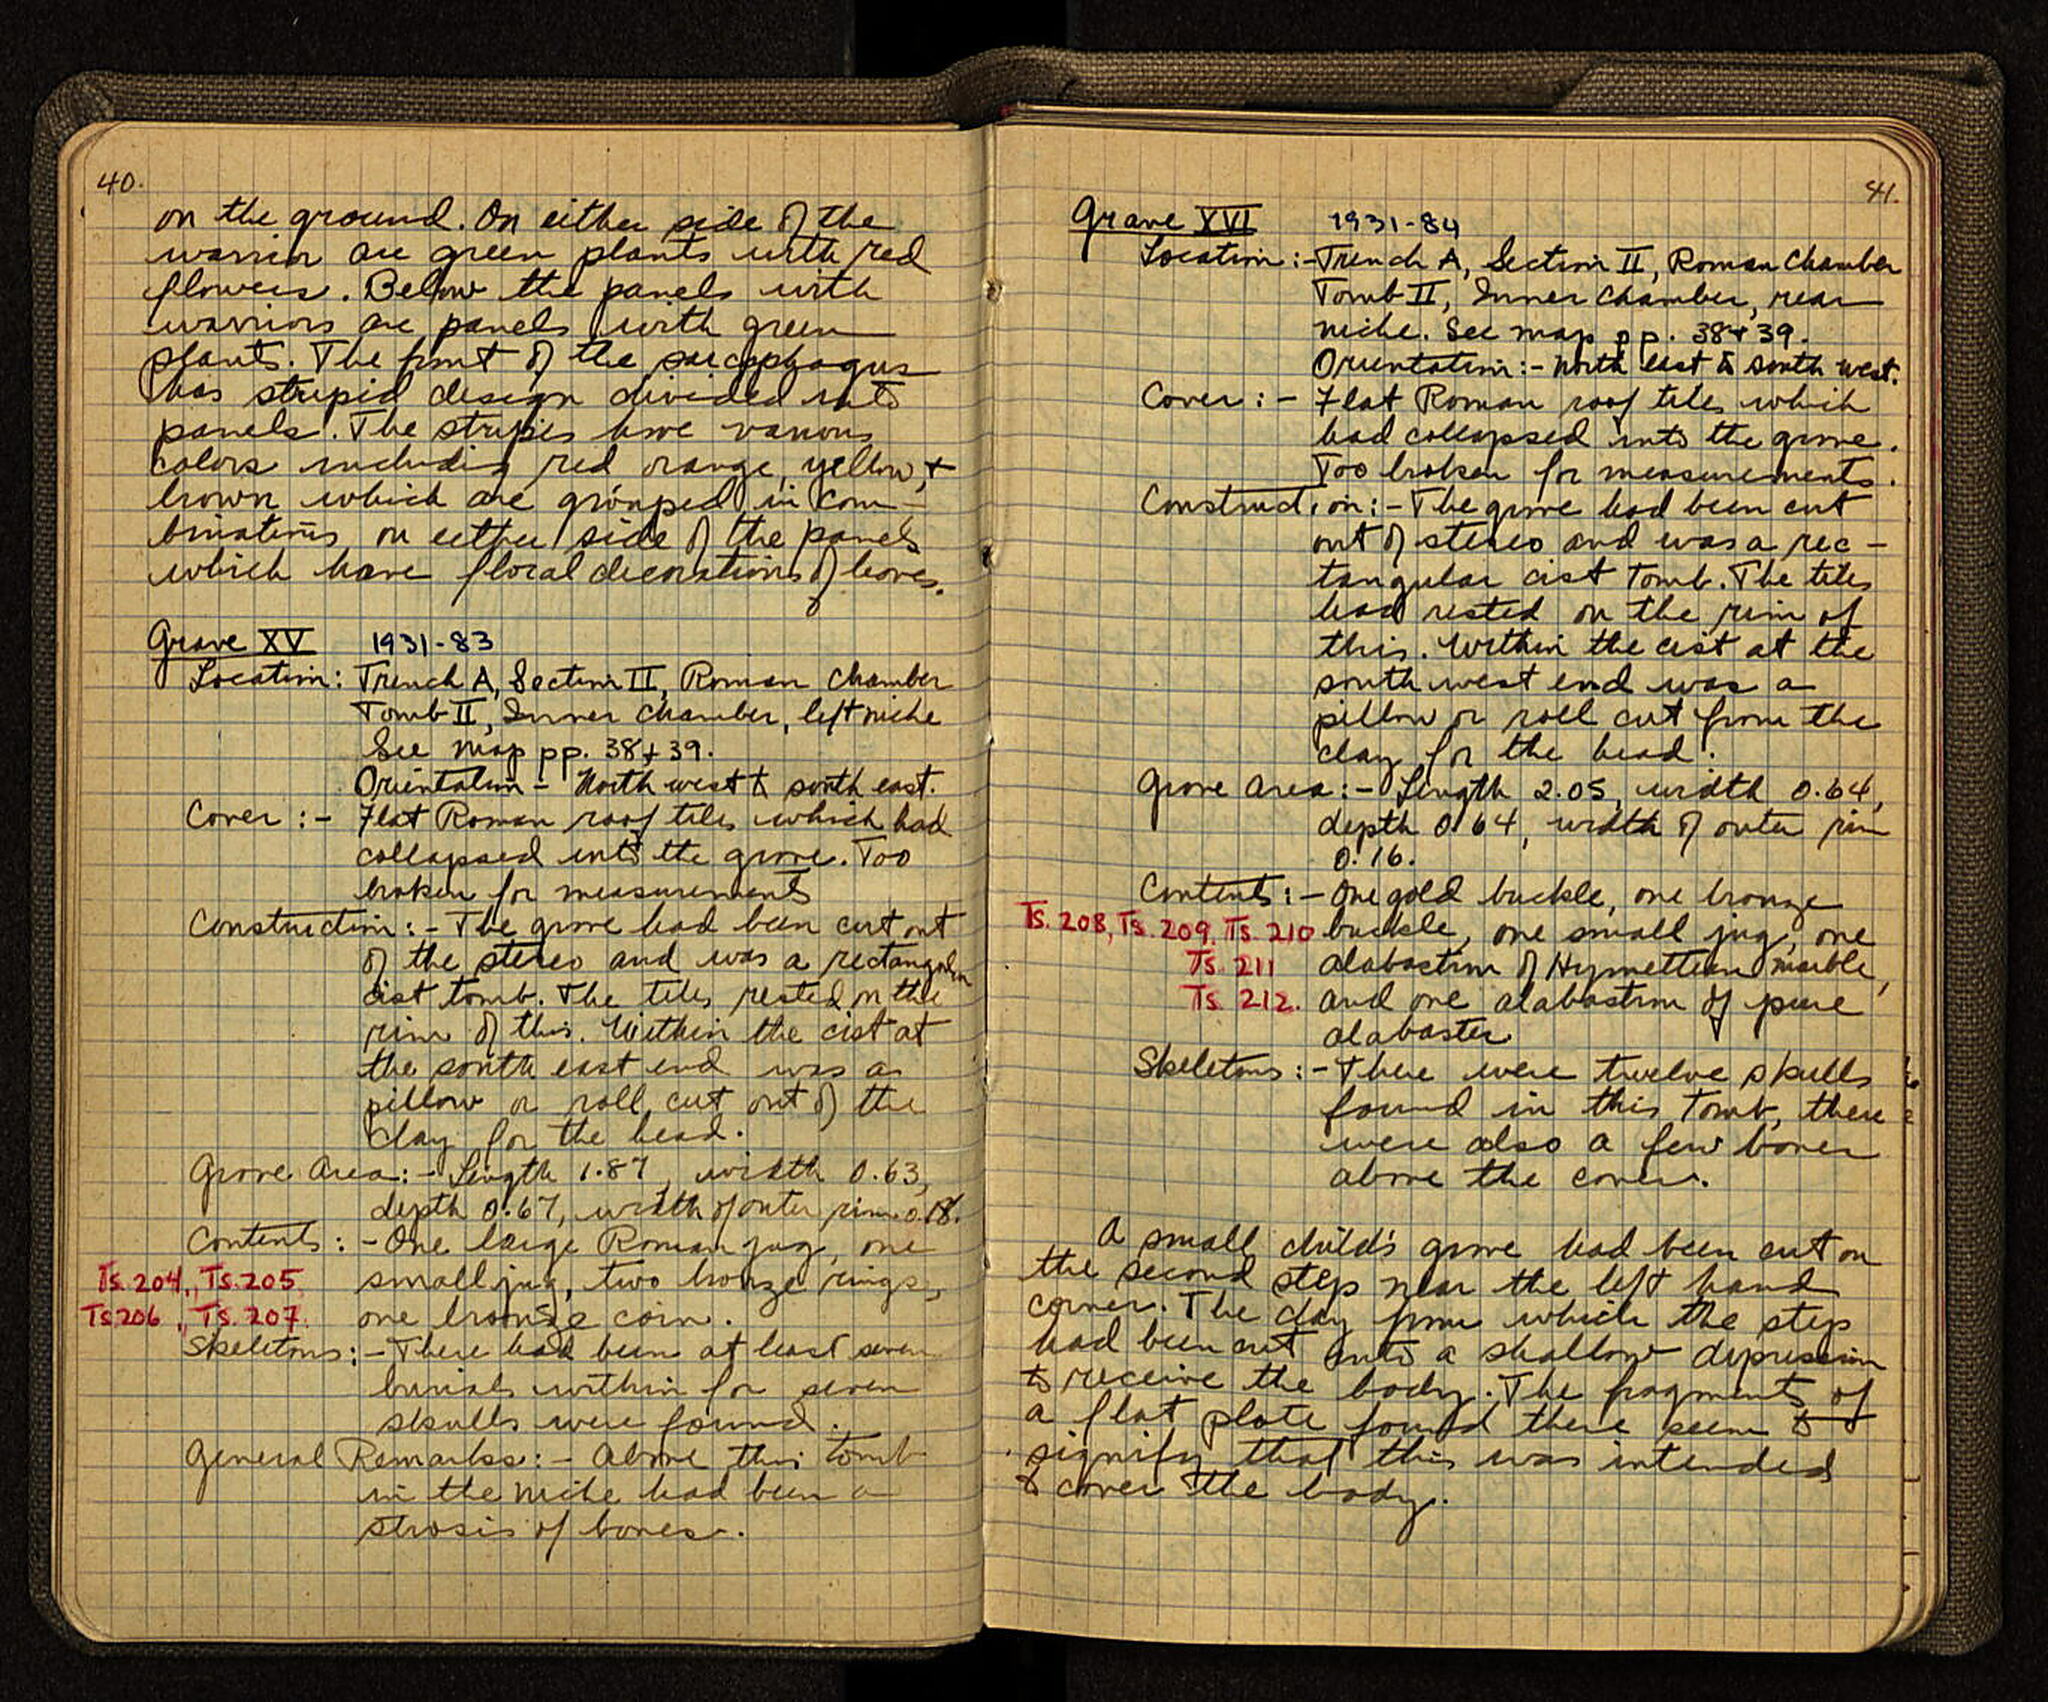 40.
on the ground. On either side of the
warrior are green plants with red
flowers. Below the panels with
warriors are panels with green
plants. The front of the sarcophagus
has striped design divided into
panels. The stripes have various
colors including red orange, yellow, +
brown which are grouped in com-
binations on either side of the panels
which have floral decorations of leaves.
Grave XV 1931-83
Location: Trench A, Section II, Roman Chamber
Tomb II, Inner Chamber, left niche
See Map pp. 38+39.
Orientation - North west to south east.
Cover :- Flat Roman roof tiles which had
collapsed into the grave. Too
broken for measurements
Construction :- The grave had been cut out
of the stereo and was a rectangular
cist tomb. The tiles rested on the
rim of this. Within the cist at
the south east end was a
pillow or roll cut out of the
clay for the head.
Grave Area :- Length 1.87, width 0.63,
depth 0.67, width of outer rim 0.18.
Contents :- One large Roman jug, one
Ts. 204, Ts. 205 small jug, two bronze rings,
Ts 206, Ts. 207. one bronze coin.
Skeletons :- There had been at least seven
burials within for seven
skulls were found.
General Remarks :- Above this tomb
in the niche had been a
strosis of bones.
41.
Grave XVI 1931-84
Location :- Trench A, Section II, Roman Chamber
Tomb II, Inner Chamber, rear
niche. See map pp. 38+39.
Orientation :- North east to south west.
Cover :- Flat Roman roof tiles which
had collapsed into the grave.
Too broken for measurements.
Construction :- The grave had been cut
out of stereo and was a rec-
tangular cist tomb. The tiles
had rested on the rim of
this. Within the cist at the
south west end was a
pillow or roll cut from the
clay for the head.
Grave Area :- Length 2.05, width 0.64,
depth 0.64, width of outer rim
0.16.
Contents :- One gold buckle, one bronze
Ts. 208, Ts. 209, Ts. 210 buckle, one small jug, one
Ts. 211 alabastron of Hymettean marble,
Ts. 212. and one alabastron of pure
alabaster
Skeletons :- There were twelve skulls
found in this tomb, there
were also a few bones
above the cover.
A small child's grave had been cut on
the second step near the left hand
corner. The clay from which the steps
had been cut into a shallow depression
to receive the body. The fragments of
a flat plate found there seem to
signify that this was intended
to cover the body.